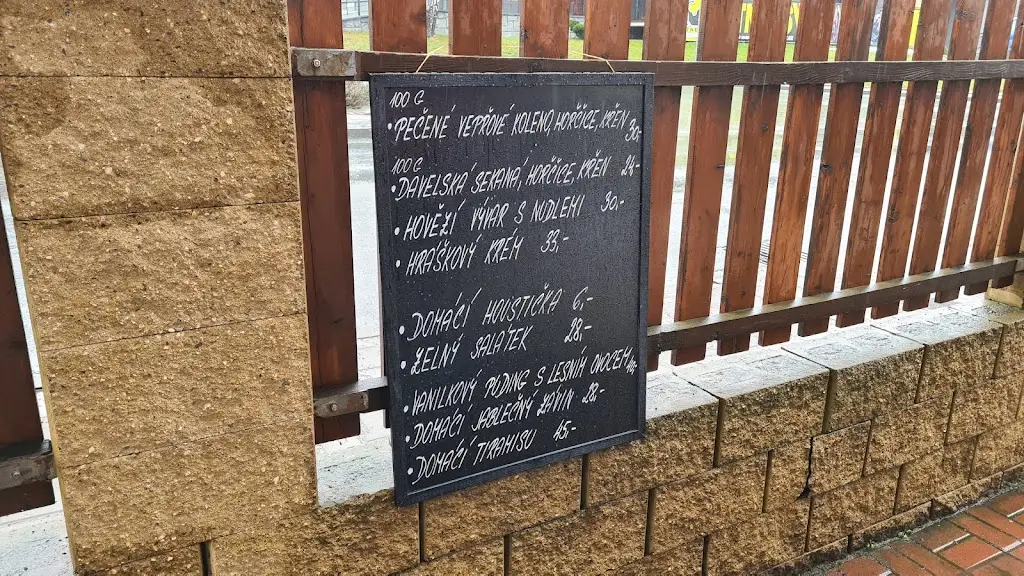 100 G
• PEČENÉ VEPŘOVÉ KOLENO, HOŘČICE, KŘEN 30,-
100 G
• DAVELSKÁ SEKANÁ, HOŘČICE, KŘEN 24,-
• HOVĚZÍ VÝVAR S NUDLEMI 30,-
• HRÁŠKOVÝ KRÉM 33,-
• DOMÁCÍ HOUSTIČKA 6,-
• ZELNÝ SALÁTEK 28,-
• VANILKOVÝ PUDING S LESNÍM OVOCEM
• DOMÁCÍ JABLEČNÝ ZÁVIN 28,-
• DOMÁCÍ TIRAMISU 45,-